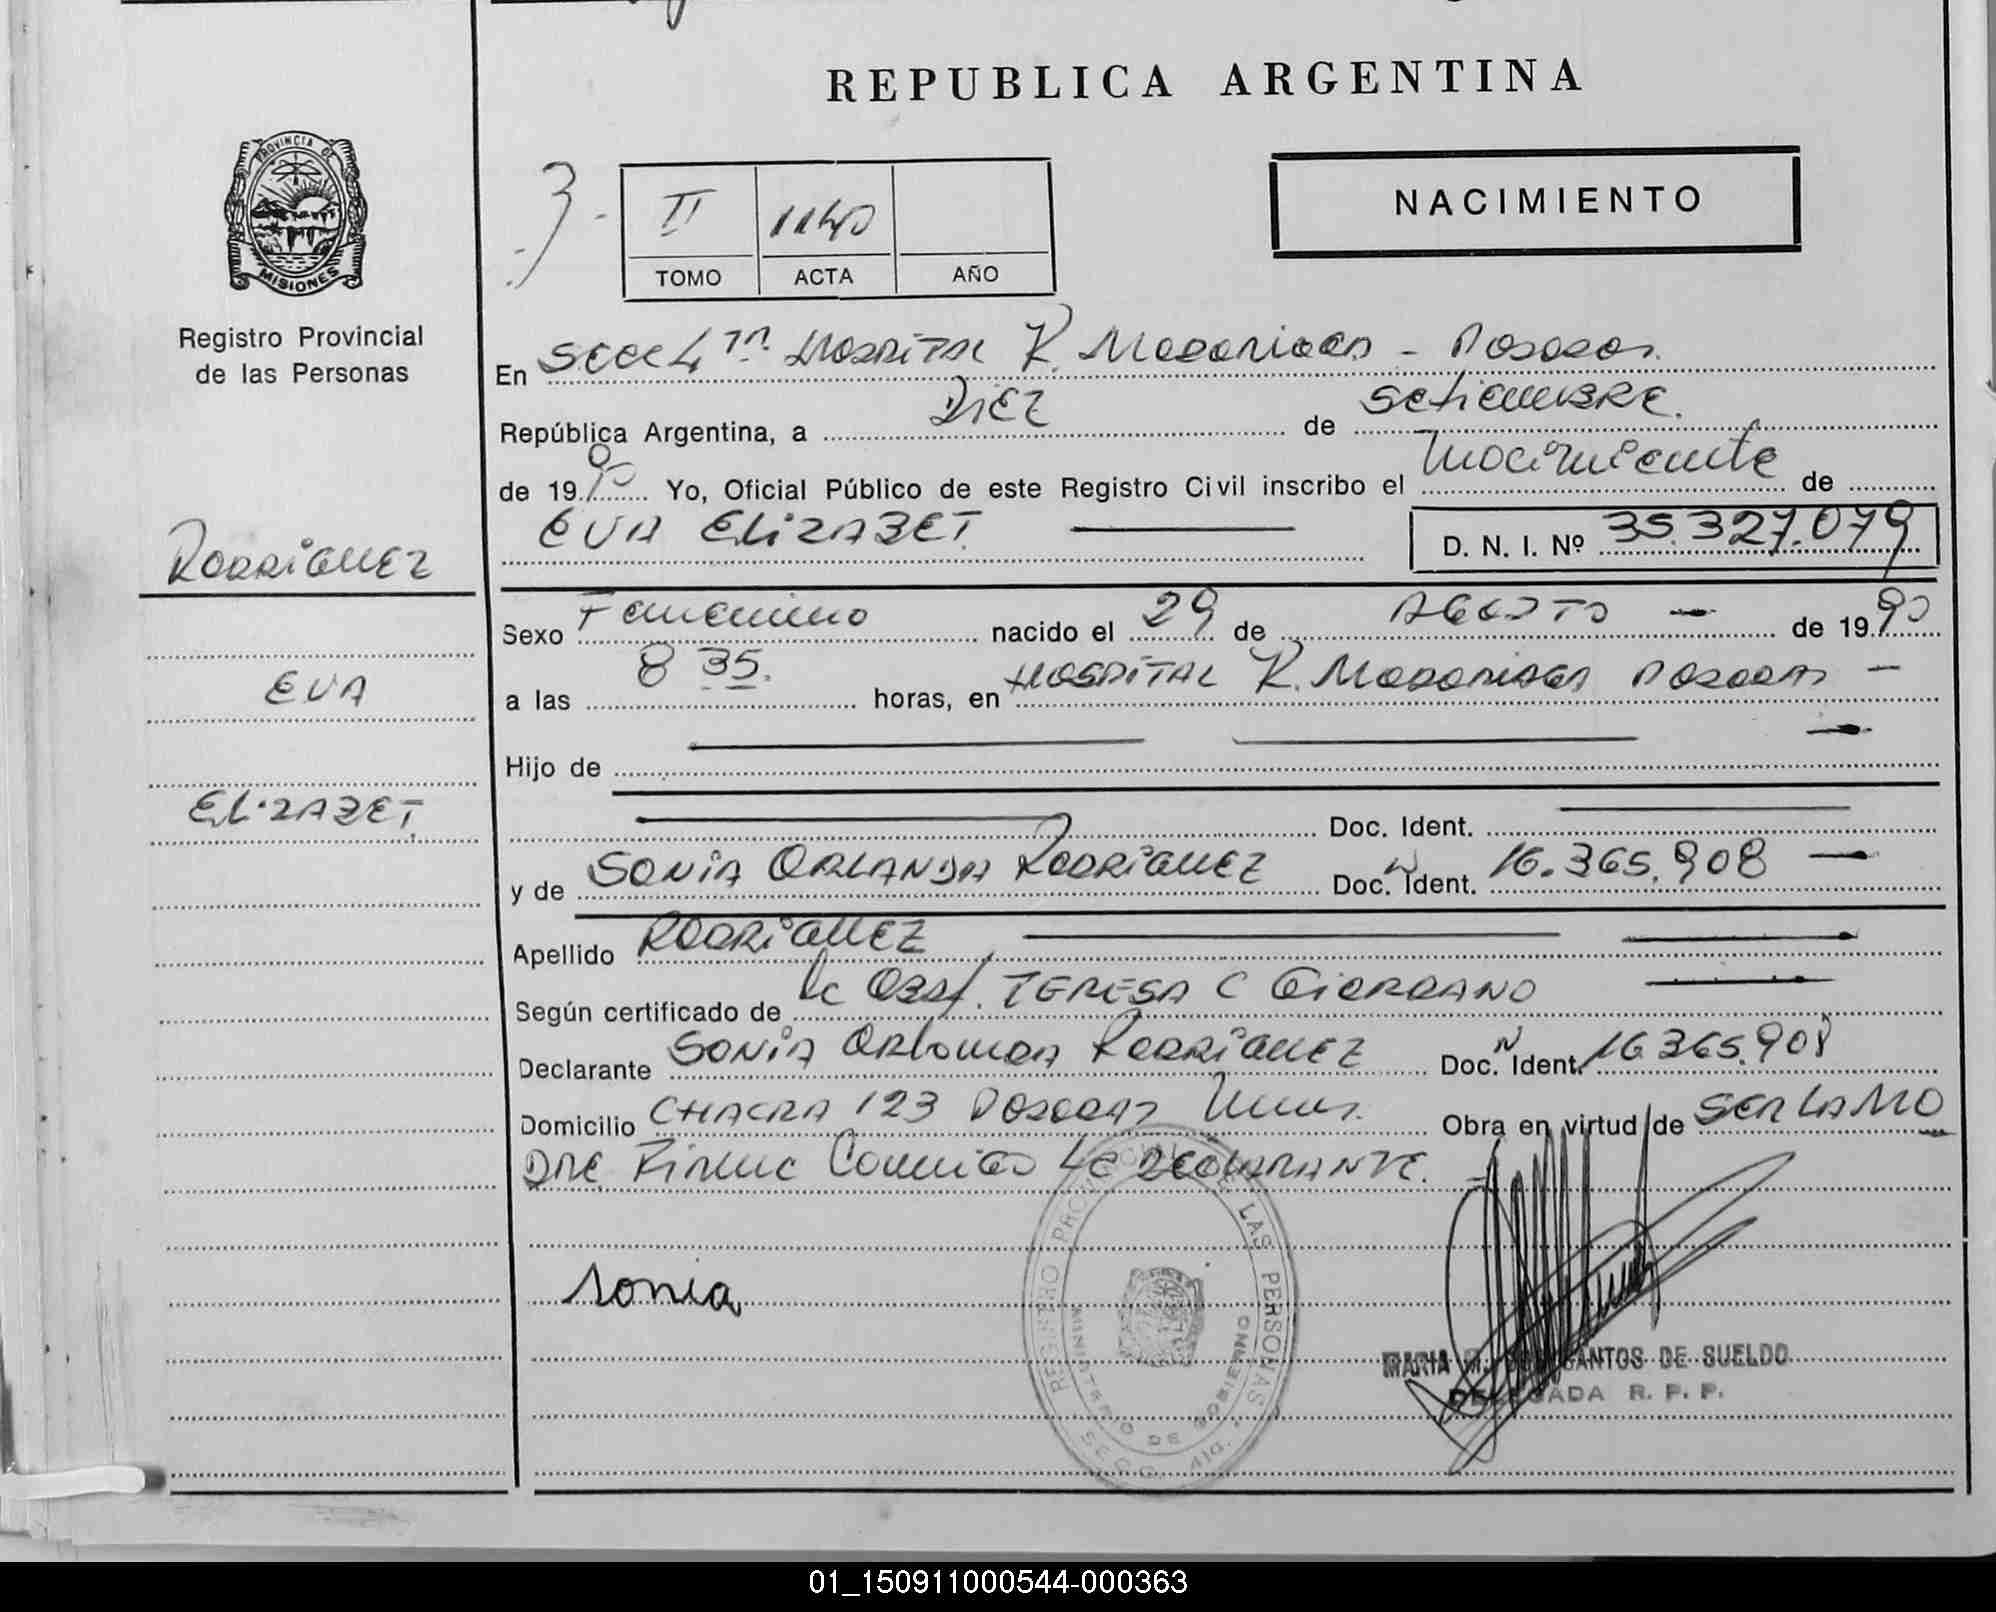 REPUBLICA ARGENTINA
PROVINCIA DE
MISIONES
Registro Provincial
de las Personas
NACIMIENTO
II 1140
TOMO ACTA AÑO
En Secc 4ta Hospital R. Madariaga - Posadas.
República Argentina, a DIEZ de SetiemBRE.
de 1990 Yo, Oficial Público de este Registro Civil inscribo el Nacimiento de
EVA ELIZABET. D. N. I. Nº 35.327.079
RODRIGUEZ
EVA
ELIZABET
Sexo Femenino nacido el 29 de AGOSTO de 1990
a las 8 35. horas, en HOSPITAL R. Madariaga Posadas
Hijo de
Doc. Ident.
y de SONIA ORLANDA RODRIGUEZ Doc. N Ident. 16.365.908
Apellido RODRIGUEZ
Según certificado de la Obst. TERESA C GIORDANO
Declarante SONIA ORLANDA RODRIGUEZ Doc. N Ident. 16.365.908
Domicilio CHACRA 123 Posadas Mnes. Obra en virtud de SER LA MA
DRE Firma Conmigo La DECLARANTE.
sonia
REGISTRO PROVINCIAL DE LAS PERSONAS
MINISTERIO DE GOBIERNO
MARIA SANTOS DE SUELDO
DELEGADA R. P. P.
01_150911000544-000363